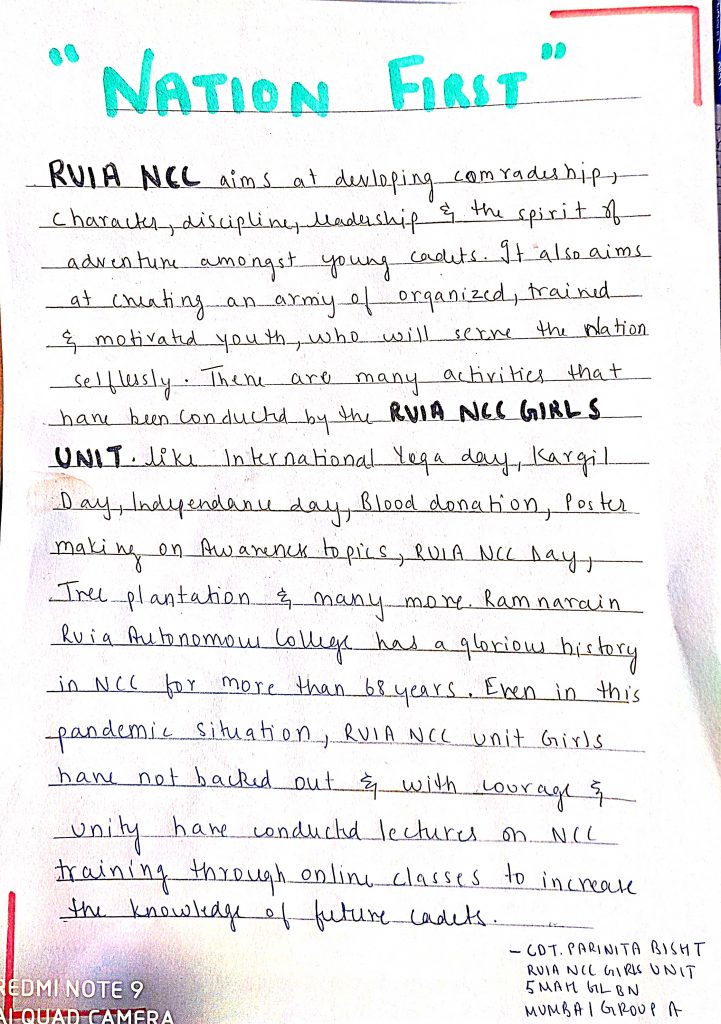 "NATION FIRST"
RUIA NCC aims at devloping comradeship,
character, discipline, leadership & the spirit of
adventure amongst young cadets. It also aims
at creating an army of organized, trained
& motivated youth, who will serve the Nation
selflessly. There are many activities that
have been conducted by the RUIA NCC GIRLS
UNIT. like International Yoga day, Kargil
Day, Independance day, Blood donation, Poster
making on Awareness topics, RUIA NCC Day,
Tree plantation & many more. Ramnarain
Ruia Autonomous College has a glorious history
in NCC for more than 68 years. Even in this
pandemic situation, RUIA NCC unit Girls
have not backed out & with courage &
unity have conducted lectures on NCC
training through online classes to increase
the knowledge of future cadets.
- CDT. PARINITA BISHT
RUIA NCC GIRLS UNIT
5 MAH GL BN
MUMBAI GROUP A
REDMI NOTE 9
AI QUAD CAMERA